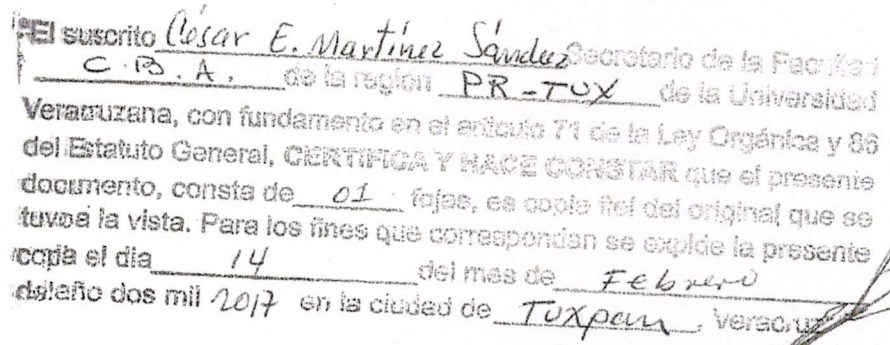 El suscrito César E. Martínez Sández Secretario de la Facultad
C.B.A. de la región PR-TUX de la Universidad
Veracruzana, con fundamento en el artículo 71 de la Ley Orgánica y 86
del Estatuto General, CERTIFICA Y HACE CONSTAR que el presente
documento, consta de 01 fojas, es copia fiel del original que se
tuvo a la vista. Para los fines que correspondan se expide la presente
copia el día 14 del mes de Febrero
del año dos mil 2017 en la ciudad de Tuxpan, Veracruz